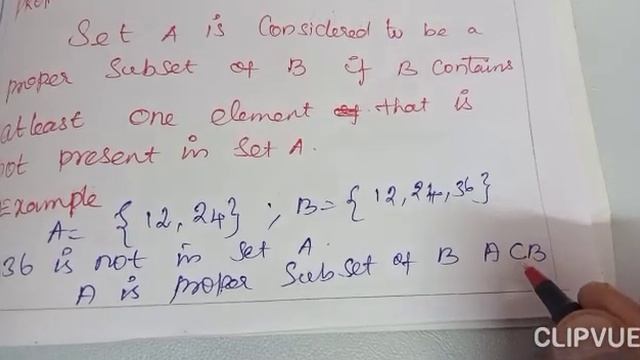 Set A is Considered to be a
proper Subset of B if B Contains
atleast one element that is
not present in Set A.
Example
A= {12, 24} ; B= {12, 24, 36}
36 is not in set A.
A is proper Subset of B A⊂B
CLIPVUE